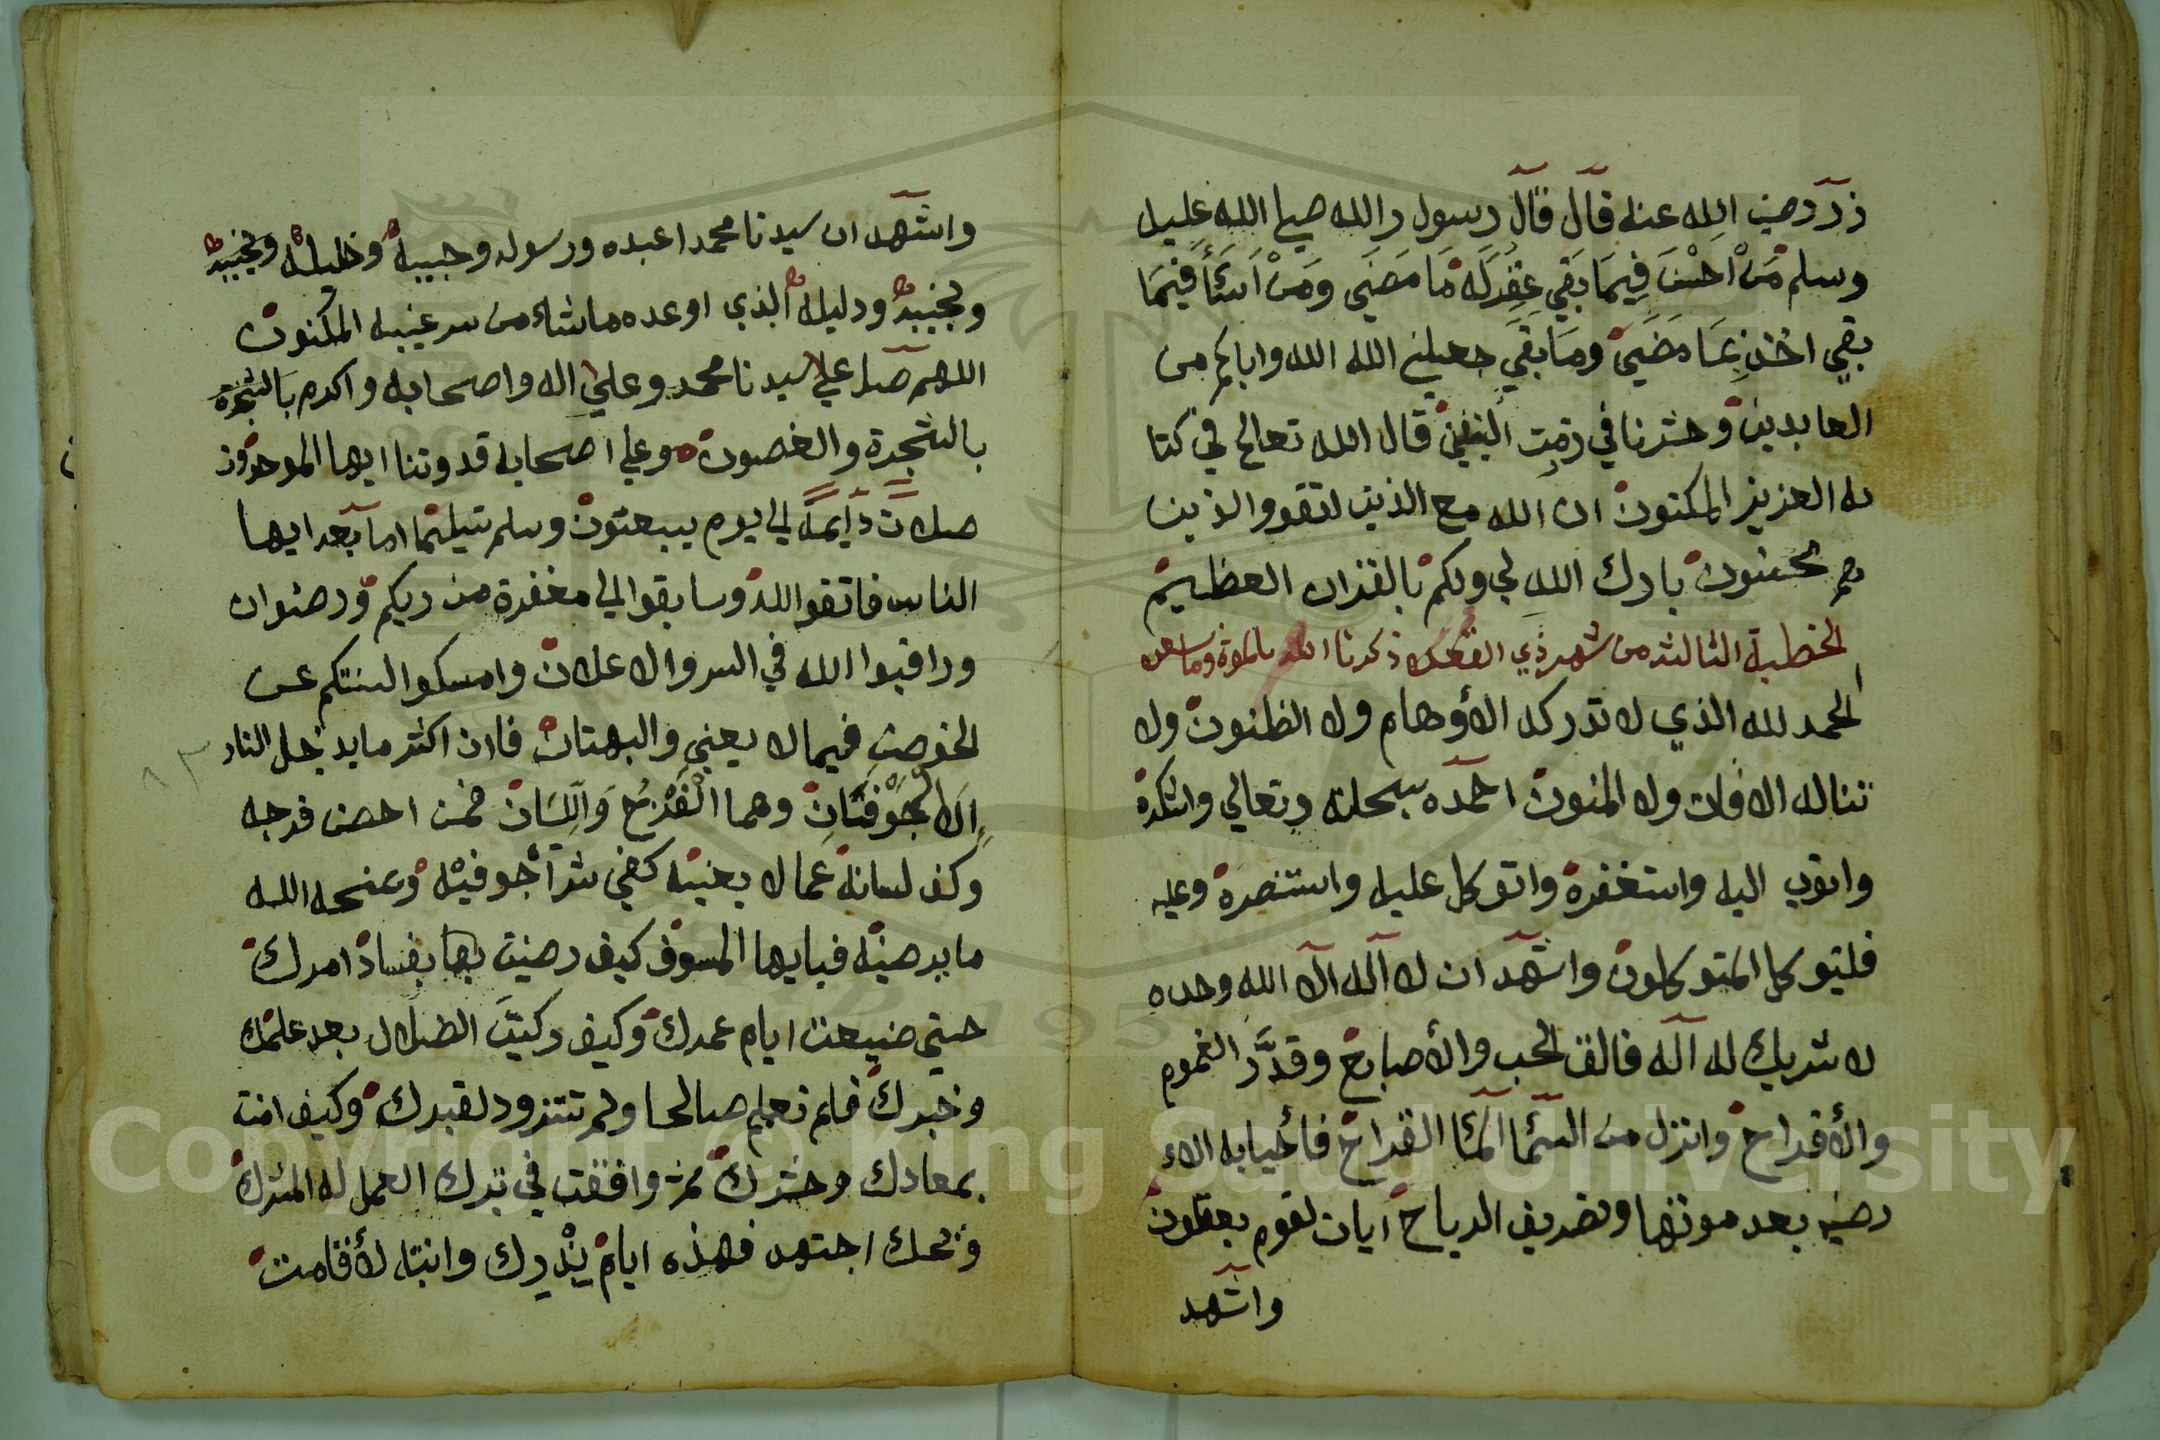 ذر رضي الله عنه قال قال رسول الله صلي الله عليه
وسلم من احسن فيما بقي غفرله ما مضي ومن اساء فيما
بقي اخذ بما مضي وما بقي جعلني الله الله واياكم من
العابدين وحشرنا في زمرت قال الله تعالي في كتا
به العزيز المكنون ان الله مع الذين اتقو والذين
هم محسنون بارك الله لي ولكم بالقران العظيم
الخطبة الثالثه من شهر ذي القعده ذكرنا الله
الحمد لله الذي لا تدركه الأوهام ولا الظنون ولا
تناله الافات ولا المنون احمده سبحانه وتعالي واشكره
واتوب اليه واستغفره واتوكل عليه واستنصره وعليه
فليتوكل المتوكلون واشهد ان لا آله الا الله وحده
لا شريك له آله فالق الحب والأصباح وقدر الغموم
والأفراح وانزل من السما الما القراح فأحيا به الاء
رض بعد موتها وتصريف الرياح ايات لقوم يعقلون
واشهد
واشهد ان سيدنا محمدا عبده ورسوله وحبيبه وخليله ونجيبه
ونجيبه ودليله الذي اوعده ماشاء من سر غيبه المكنون
اللهم صل علي سيدنا محمد وعلي اله واصحابه واكرم بالشجرة
بالشجرة والغصون وعلي اصحابه قدوتنا ايها الموحدون
صلات دايمة الي يوم يبعثون وسلم تسليما اما بعد ايها
الناس فاتقوا الله وسابقوا الي مغفرة من ربكم ورضوان
وراقبوا الله في السر والاعلان وامسكوا السنتكم عن
الخوض فيما لا يعني والبهتان فان اكثر ما يدخل النار
الاجوفتان وهما الفرج واللسان فمن احصن فرجه
وكف لسانه عما لا يعنيه كفي شر أجوفيه ومنحه الله
ما يرضيه فيايها المسوف كيف رضيت بها بفساد امرك
حتي ضيعت ايام عمرك وكيف ركبت الضلال بعد علمك
وخبرك فلم تعلم صالحا ولم تتزود لقبرك وكيف انت
بمعادك وحشرك ثمر وافقت في ترك العمل له المشرك
ويحك اجتهد فهذه ايام بذرك وانتبه لأقامت
٨٣
Copyright © King Saud University
1957